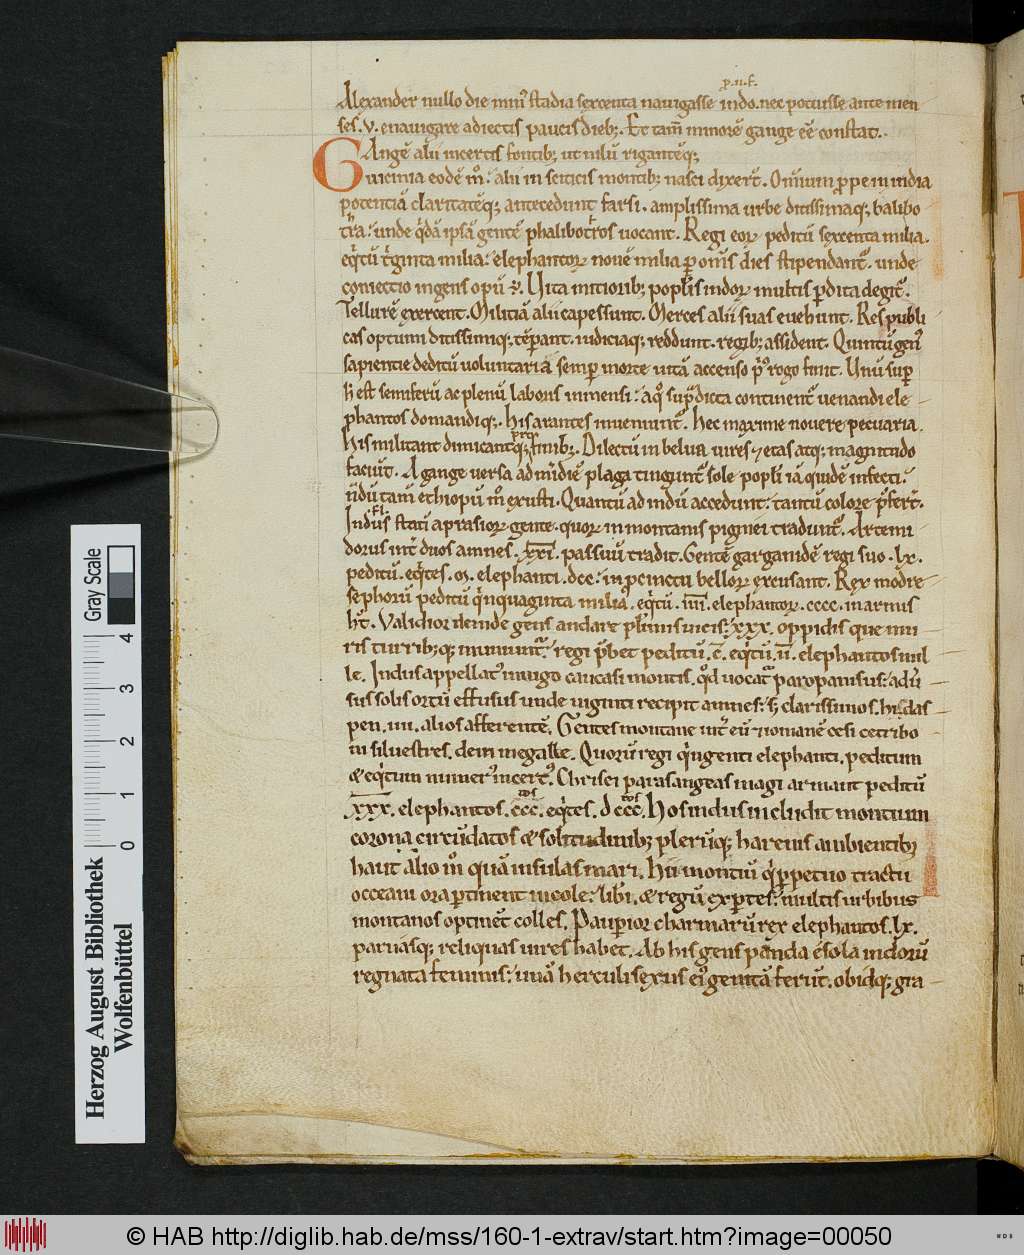 p. n. f.
Alexander nullo die min᷒ stadia sexcenta nauigasse indo. nec potuisse ante men
ses. v. enauigare adiectis paucis dieb;. Et tam̄ minorē gange eē constat.
GAngē alii incertis fontib; ut nilū rigantēq;
uicinia eodē m̊. alii in sciticis montib; nasi dixer̄t. Om̄ium ꝓpe in india
potentiā claritatēq; antecedunt farsi. amplissima urbe ditissimaq; balibo
tra. unde q̇dā ipsā gentē phalibotros uocant. Regi eoꝝ peditū sexcenta milia.
eq̇tū tͥginta milia. elephantoꝝ nouē milia ꝑ om̄s dies stipendant᷒. unde
coniectio ingens opū ÷. Uita mitiorib; popłis indoꝝ multis ꝑdita degit᷒.
Tellurē exercent. Militiā alii capessunt. Merces alii suas euehunt. Res publi
cas optumi ditissimiq; tēꝑant. iudiciaq; reddunt. regib; assident. Quintū gen᷒
sapientie deditū uoluntaria semꝑ morte uitā accenso p̊ rogo finit. Unū suꝑ
h̄ est semiferū ac plenū laboris inmensi. a q̊ sup̄dicta continent᷒ uenandi ele
phantos domandiq;. His arantes inueniunt᷒. hec maxime nouere pecuaria.
His militant dimicantq; pro finib;. Dilectū in belua uires ⁊ etas atq; magnitudo
faciūt. A gange uersa ad mͥdiē plaga tingunt᷒ sole popłi iā quidē infecti.
n̄dū tam̄ ethiopū m̊ exusti. Quantū ad indū accedunt. tantū colore p̄fer̄t.
Indus stati a prasioꝝ gente. quoꝝ in montanis pigmei tradunt᷒. Artemi
dorus int᷒ duos amnes. x̄x̄ī. passuū tradit. Gentē gargamdē regi suo. lx.
peditū. eq̇tes. ꝏ. elephanti. dcc. in ꝓcinctu belloꝝ excusant. Rex modre
sephorū peditū q̇nquaginta milia. eq̇tū. īīīī. elephantoꝝ. cccc. in armis
ht̄. Validior deinde gens andare plͥmis uicis. xxx. oppidis que mu
ris turrib;q; muniunt᷒. regi p̄bet peditū. c̄. eq̇tū. īī. elephantos mil
le. Indus appellat᷒ in iugo caucasi montis. qd̊ uocat᷒ paropanisus. aduͬ
sus solis ortū effusus unde uiginti recipit amnes. sȝ clarissimos. hidas
pen. iiii. alios afferentē. Gentes montane int᷒ eū ⁊ iomanē cesi cetribo
in siluestres. dein megalle. Quorū regi q̇ngenti elephanti. peditum
& eq̇tum numer᷒ incert᷒. Chrisei parasangeas magi armant peditū
x̄x̄x̄. elephantos. ccc. eq̇tes. dccc. Hos indus includit montium
corona circūdatos & solitudinib; plerūq; harenis ambientib;
haut alio m̊ quā insulas mari. Hii montiū q̇ ꝑpetuo tractu
occeani ora ꝑtinent incole. libͥi. & regū exꝑtes. multis urbibus
montanos optinēt colles. Pauꝑior charmarū rex elephantos. lx.
paruasq; reliquas uires habet. Ab his gens panda & sola indorū
regnata feminis. unā herculi sexus ei᷒ genitā ferūt. obidq; gra
Gray Scale
0 1 2 3 4
Herzog August Bibliothek
Wolfenbüttel
© HAB http://diglib.hab.de/mss/160-1-extrav/start.htm?image=00050